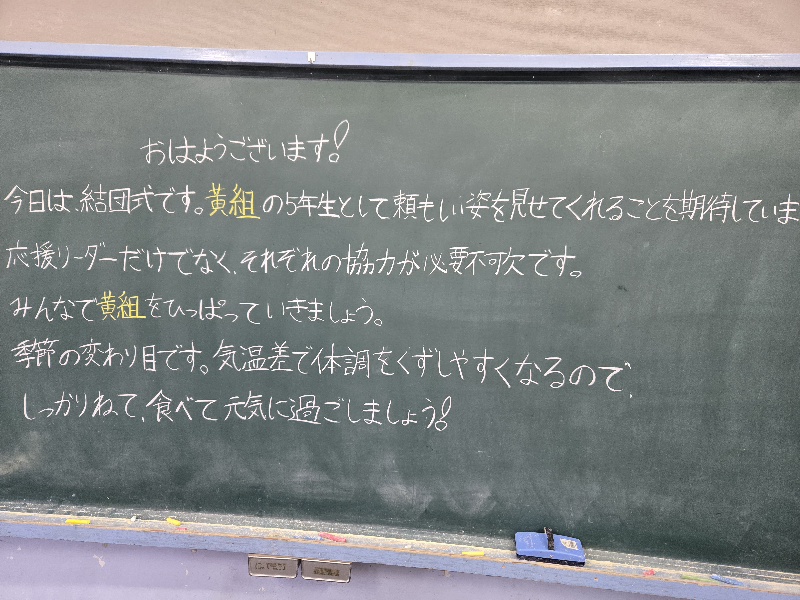 おはようございます!
今日は、結団式です。黄組の5年生として頼もしい姿を見せてくれることを期待していま
応援リーダーだけでなく、それぞれの協力が必要不可欠です。
みんなで黄組をひっぱっていきましょう。
季節の変わり目です。気温差で体調をくずしやすくなるので、
しっかりねて、食べて元気に過ごしましょう!